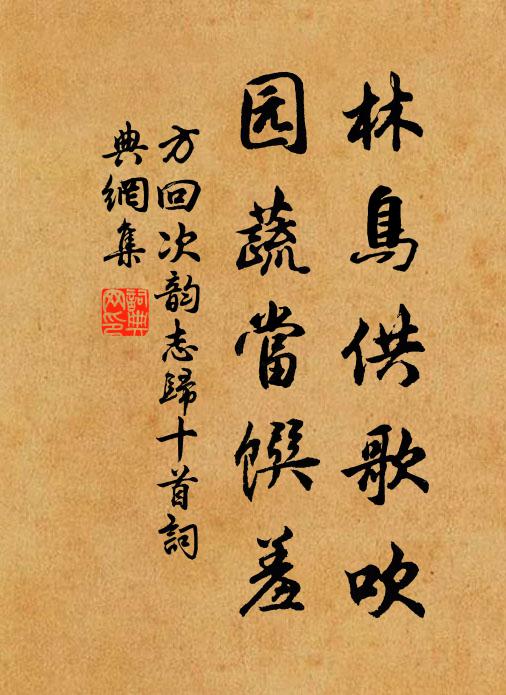 林鳥供歌吹
园蔬當馔羞
方回次韵志歸十首詞
典網集
詞典网印